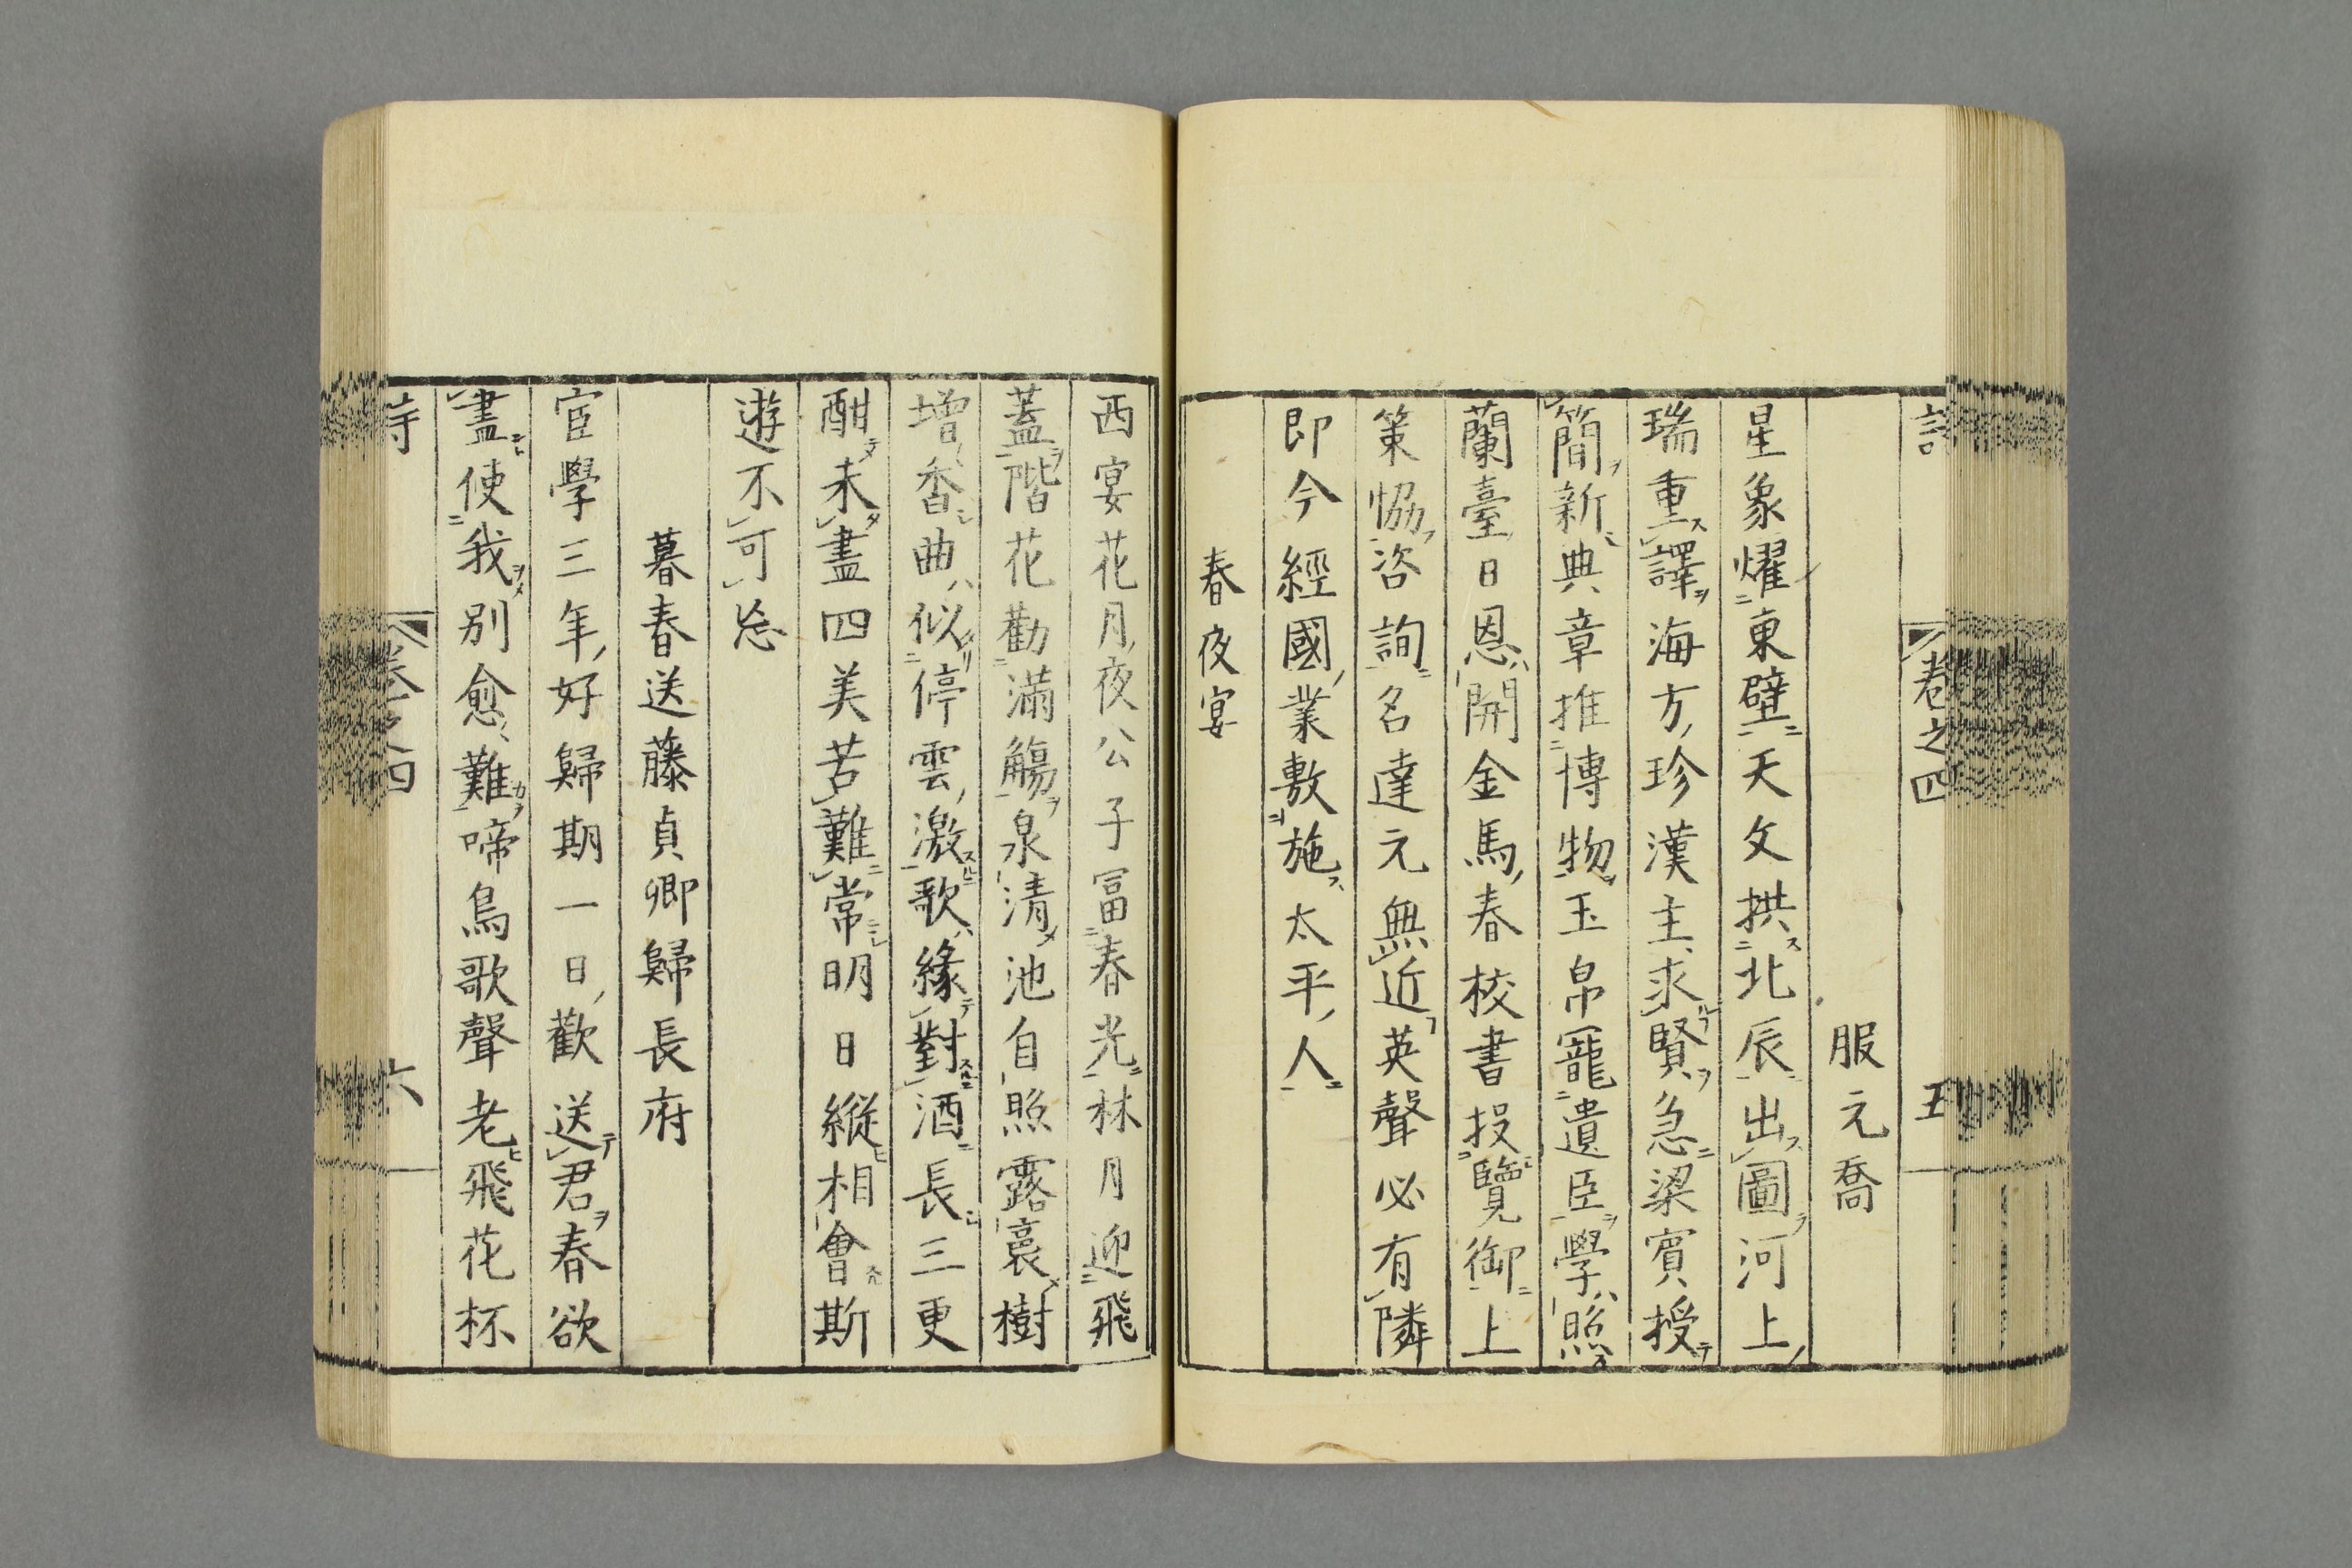 卷之四
五
服元喬
星象耀東壁天文拱北辰出圖河上
瑞重譯海方珍漢主求賢急梁賓授
簡新典章推博物玉帛寵遺臣學照
蘭臺日恩開金馬春校書投覽御上
策恊咨詢名達元無近英聲必有隣
即今經國業敷施太平人
春夜宴
西宴花月夜公子冨春光林月迎飛
蓋階花勸滿觴泉清池自照露裛樹
增香曲似停雲激歌緣對酒長三更
酣未盡四美苦難常明日縱相會斯
遊不可忘
暮春送藤貞卿歸長府
宦學三年好歸期一日歡送君春欲
盡使我別愈難啼鳥歌聲老飛花杯
卷之四
六